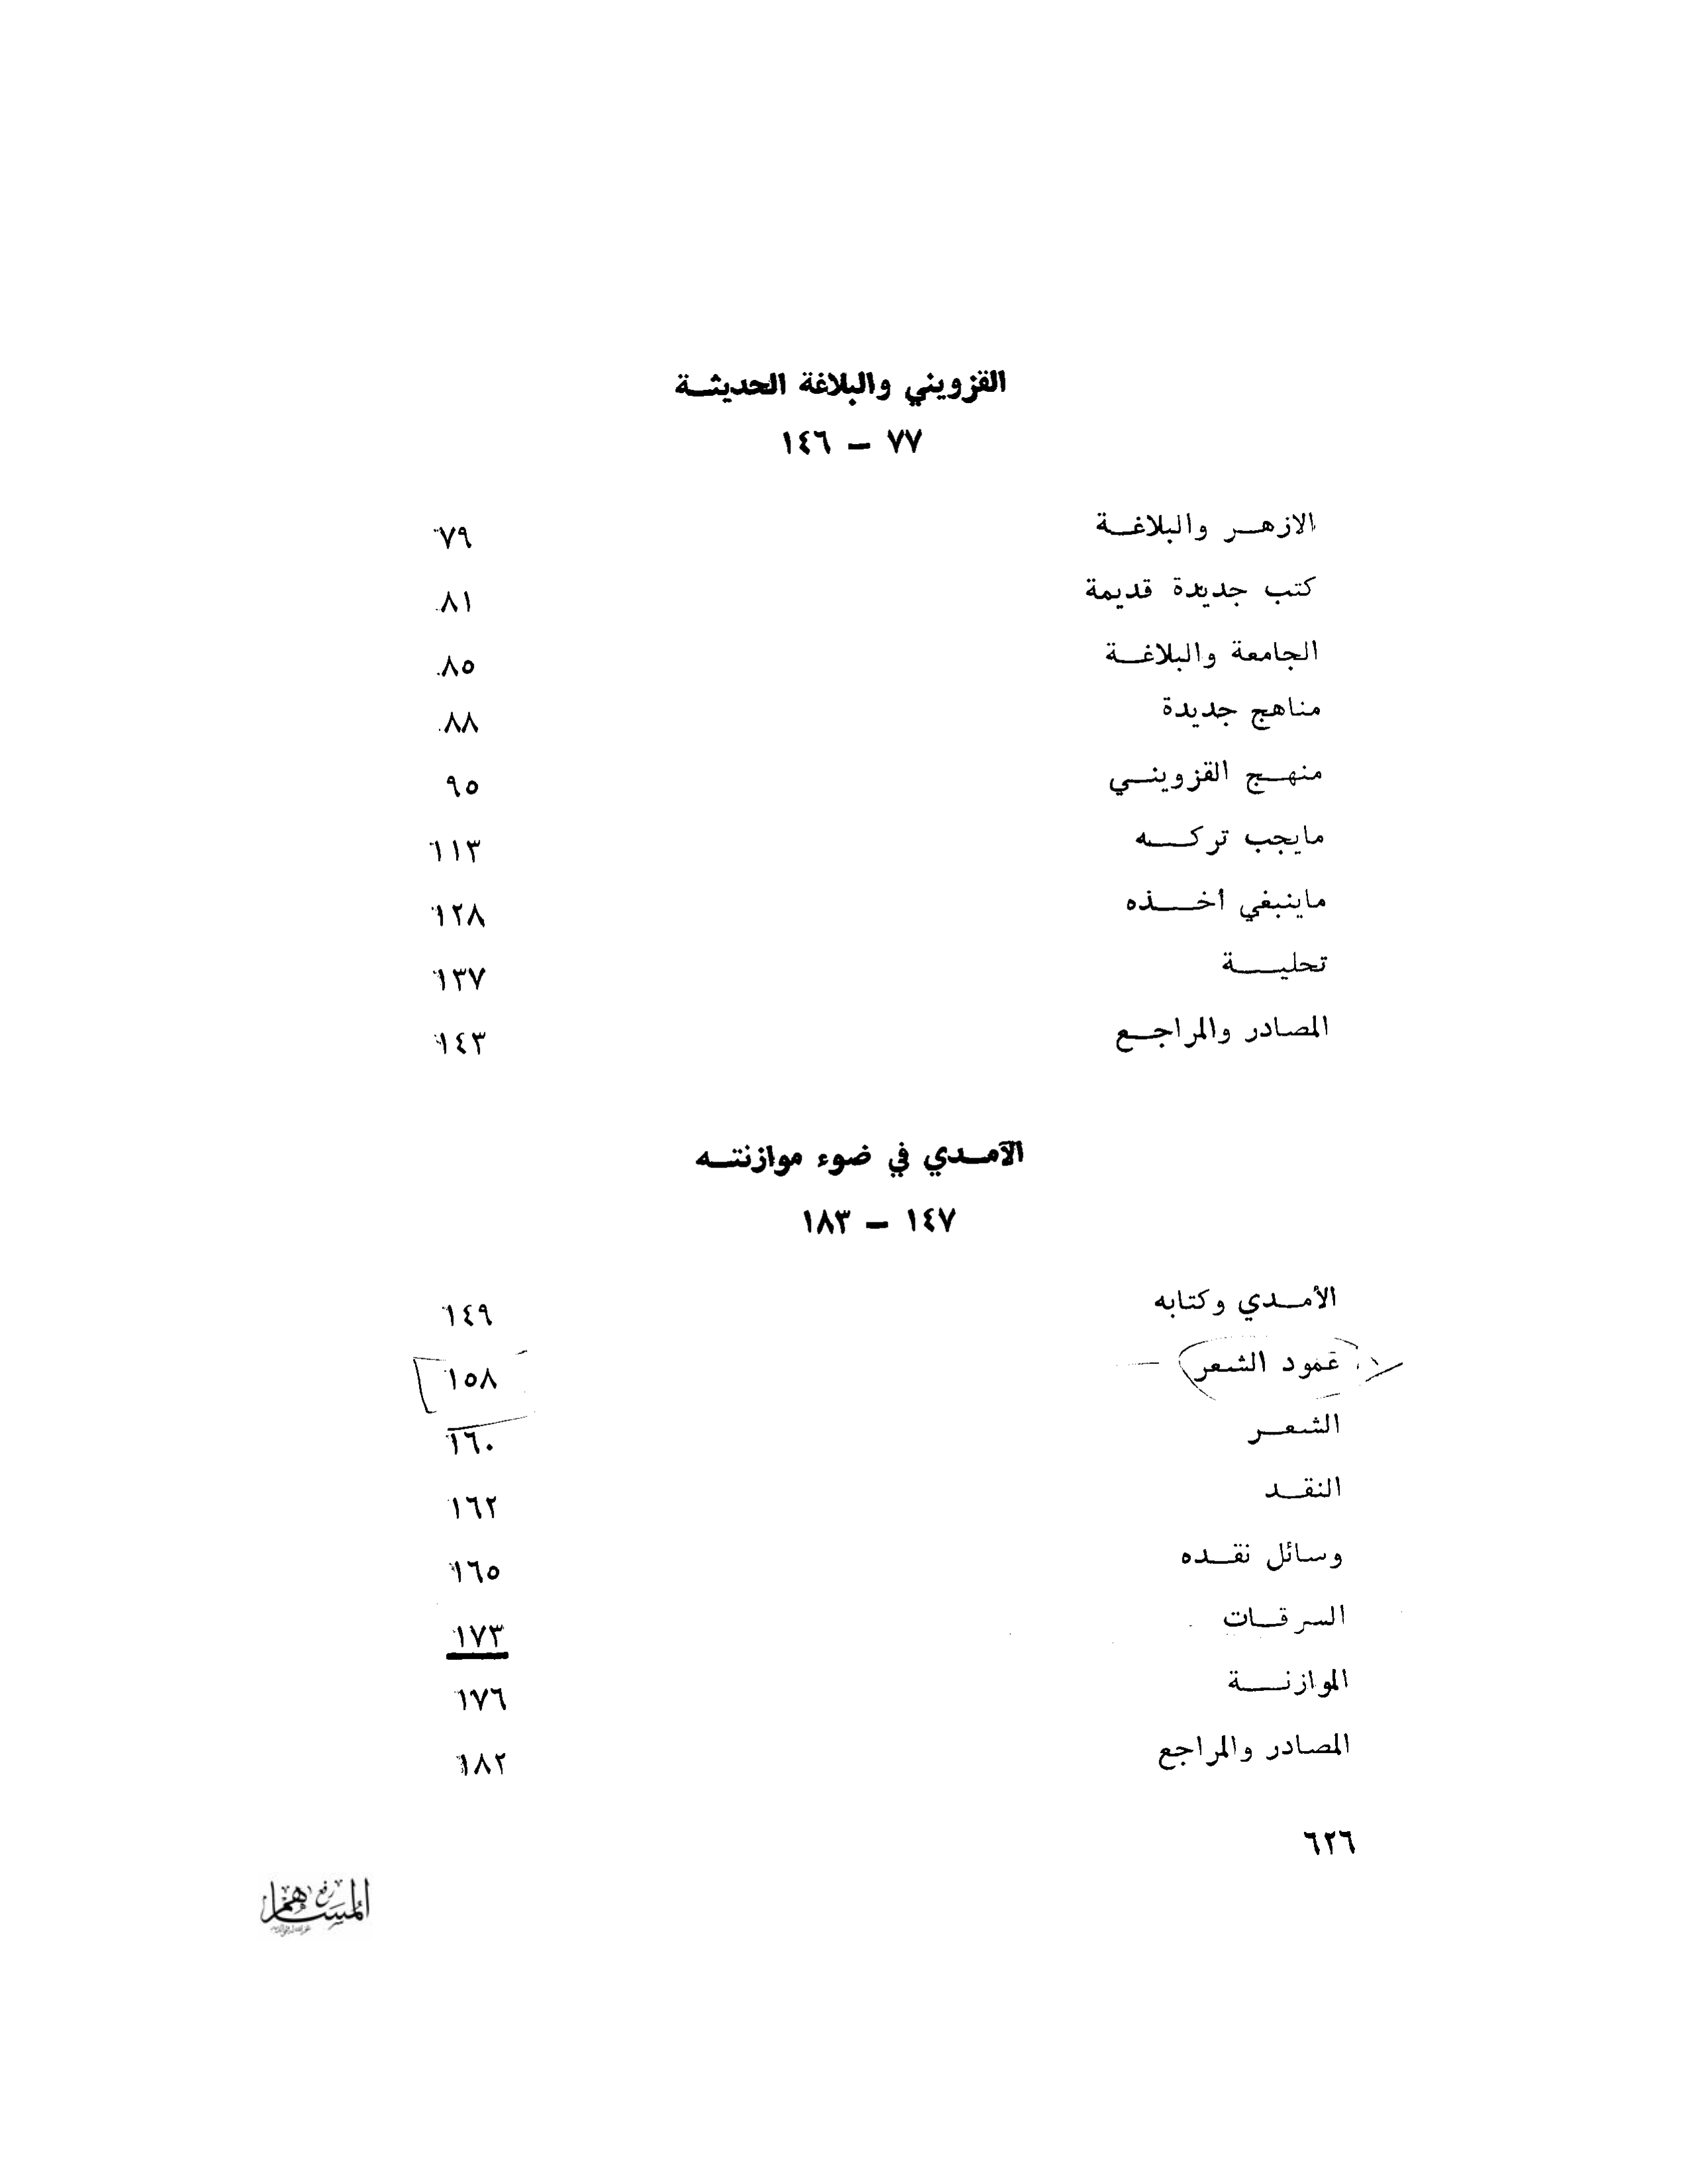 القزويني والبلاغة الحديثة
٧٧ — ١٤٦
الازهر والبلاغة ٧٩
كتب جديدة قديمة ٨١
الجامعة والبلاغة ٨٥
مناهج جديدة ٨٨
منهج القزويني ٩٥
مايجب تركه ١١٣
ماينبغي أخذه ١٢٨
تحلية ١٣٧
المصادر والمراجع ١٤٣
الآمدي في ضوء موازنته
١٤٧ — ١٨٣
الأمدي وكتابه ١٤٩
عمود الشعر ١٥٨
الشعر ١٦٠
النقد ١٦٢
وسائل نقده ١٦٥
السرقات ١٧٣
الموازنة ١٧٦
المصادر والمراجع ١٨٢
٦٢٦
رفع
المساهم